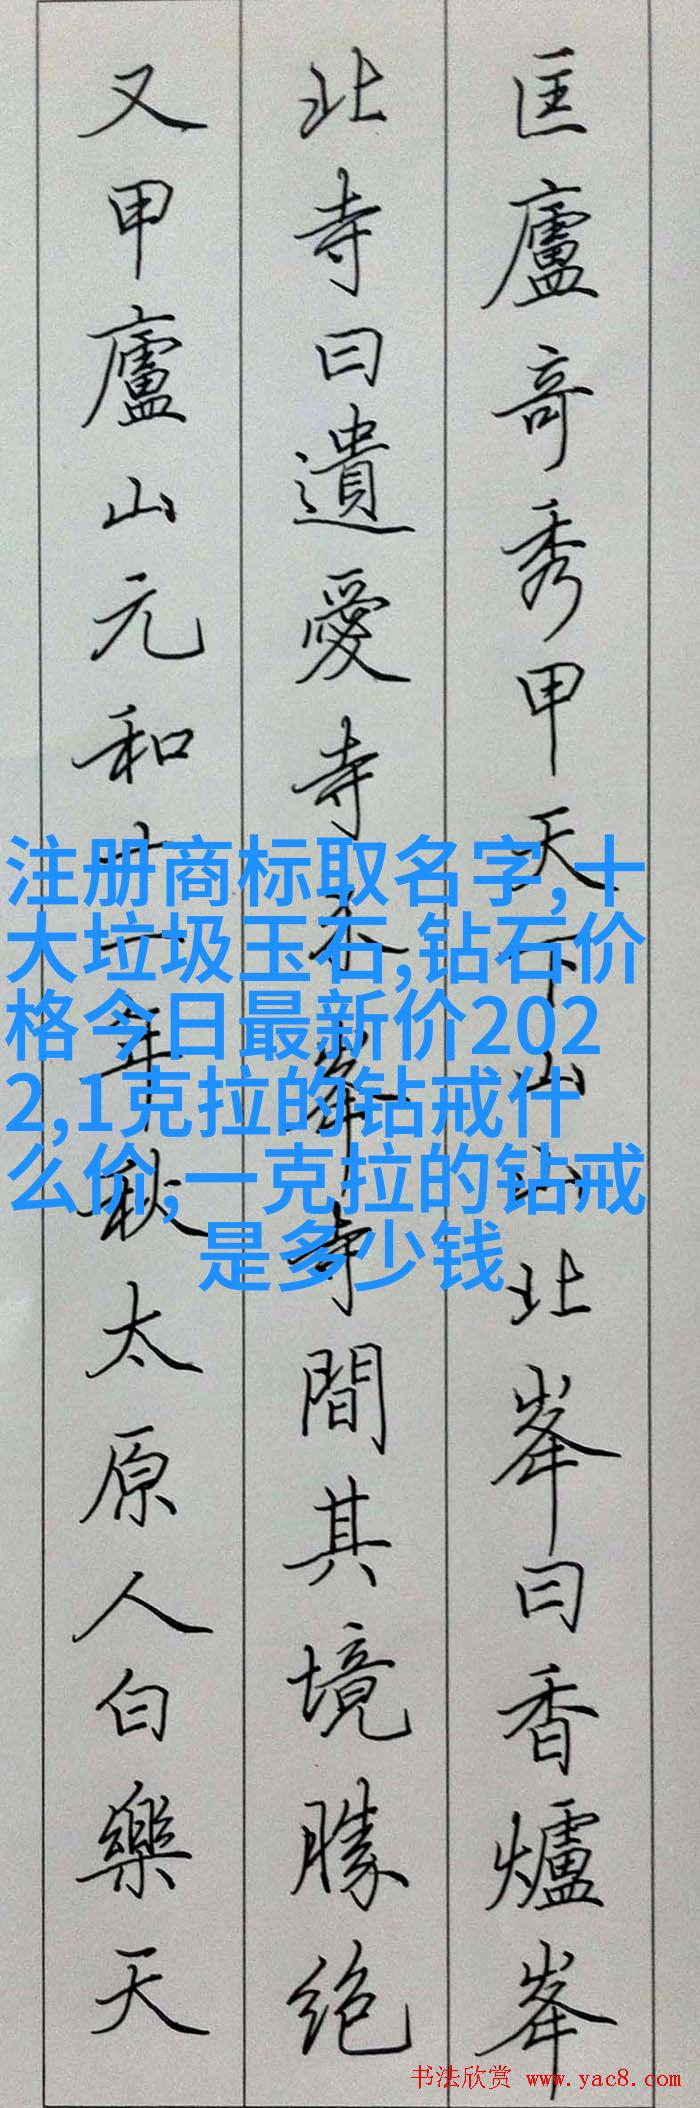 匡廬奇秀甲天下山山北峯曰香爐峯
北寺曰遺愛寺介峯寺間其境勝絶
又甲廬山元和十一年秋太原人白樂天
注册商标取名字,十
大垃圾玉石,钻石价
格今日最新价202
2,1克拉的钻戒什
么价,一克拉的钻戒
是多少钱
书法欣赏 www.yac8.com